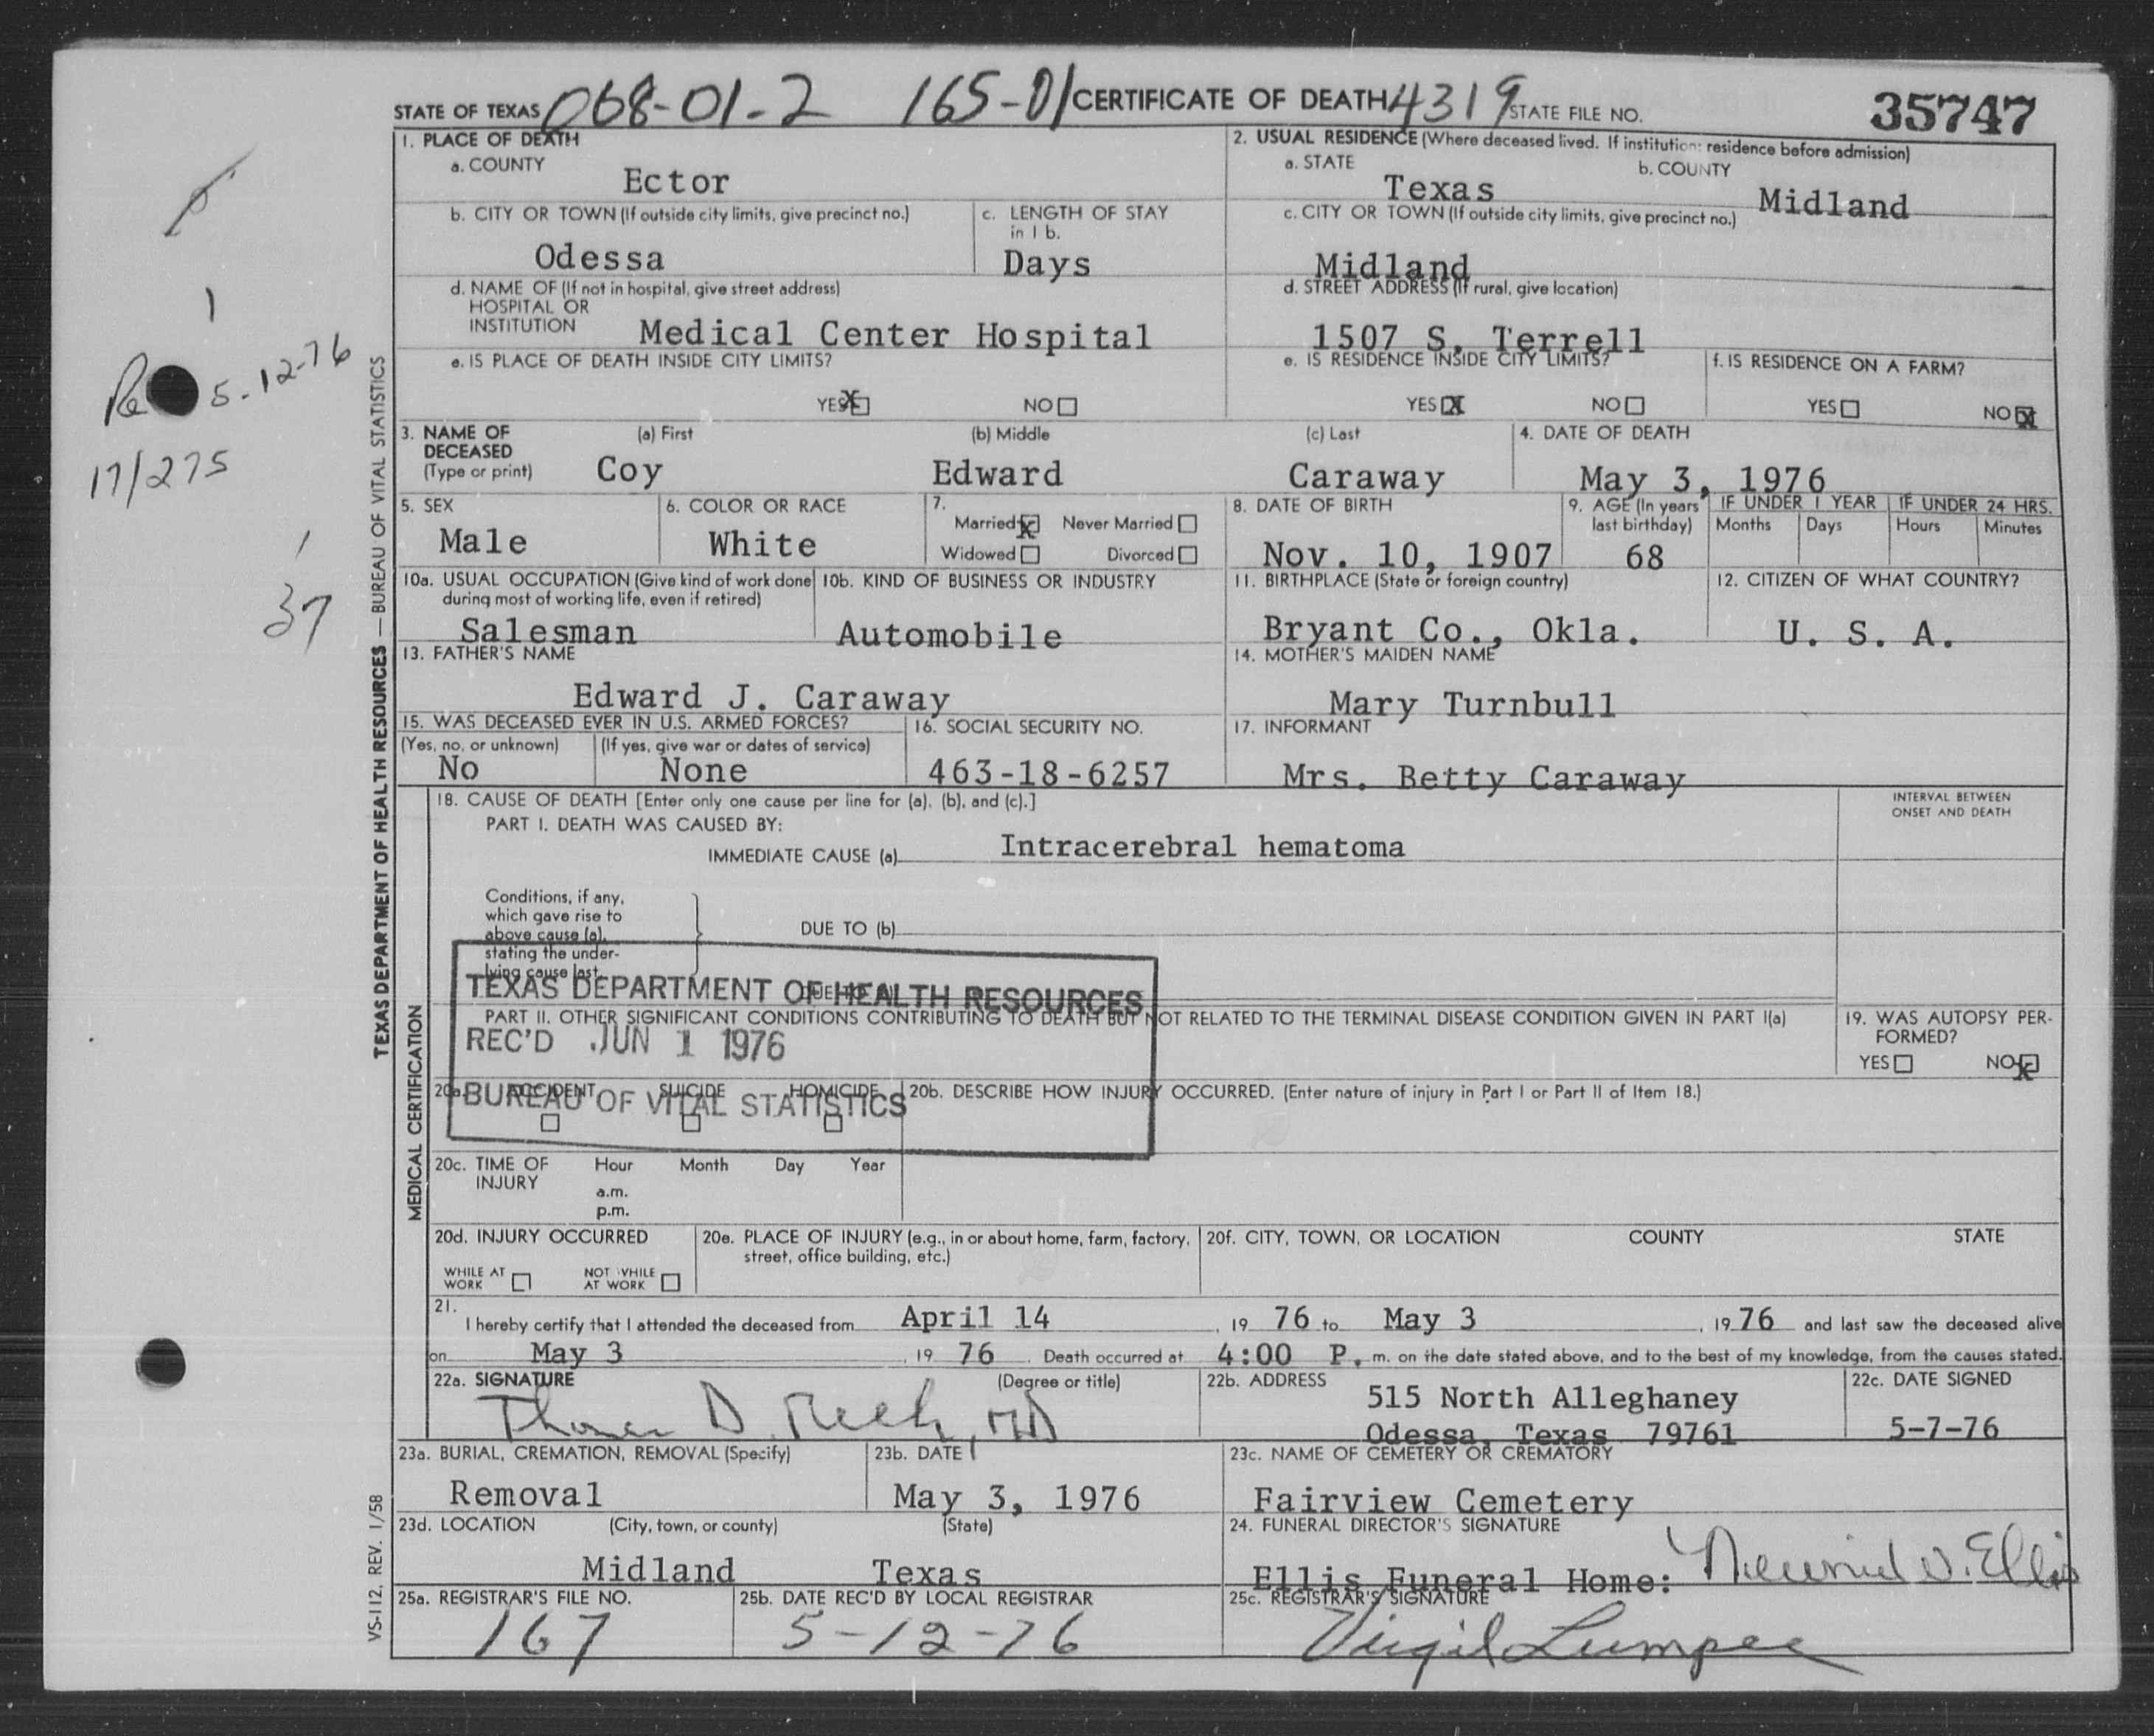 STATE OF TEXAS 068-01-2 165-01 CERTIFICATE OF DEATH 4319 STATE FILE NO. 35747
1. PLACE OF DEATH
a. COUNTY
Ector
2. USUAL RESIDENCE (Where deceased lived. If institution: residence before admission)
a. STATE
Texas
b. COUNTY
Midland
b. CITY OR TOWN (If outside city limits, give precinct no.)
Odessa
c. LENGTH OF STAY
in 1 b.
Days
c. CITY OR TOWN (If outside city limits, give precinct no.)
Midland
d. NAME OF (If not in hospital, give street address)
HOSPITAL OR
INSTITUTION Medical Center Hospital
d. STREET ADDRESS (If rural, give location)
1507 S. Terrell
e. IS PLACE OF DEATH INSIDE CITY LIMITS?
YES X NO
e. IS RESIDENCE INSIDE CITY LIMITS?
YES X NO
f. IS RESIDENCE ON A FARM?
YES NO X
1
5-12-76
17/275
1
37
3. NAME OF
DECEASED
(Type or print)
(a) First (b) Middle (c) Last
Coy Edward Caraway
4. DATE OF DEATH
May 3, 1976
5. SEX
Male
6. COLOR OR RACE
White
7.
Married X Never Married
Widowed Divorced
8. DATE OF BIRTH
Nov. 10, 1907
9. AGE (In years
last birthday)
68
IF UNDER 1 YEAR
Months Days
IF UNDER 24 HRS.
Hours Minutes
10a. USUAL OCCUPATION (Give kind of work done
during most of working life, even if retired)
Salesman
10b. KIND OF BUSINESS OR INDUSTRY
Automobile
11. BIRTHPLACE (State or foreign country)
Bryant Co., Okla.
12. CITIZEN OF WHAT COUNTRY?
U. S. A.
13. FATHER'S NAME
Edward J. Caraway
14. MOTHER'S MAIDEN NAME
Mary Turnbull
15. WAS DECEASED EVER IN U.S. ARMED FORCES?
(Yes, no, or unknown) (If yes, give war or dates of service)
No None
16. SOCIAL SECURITY NO.
463-18-6257
17. INFORMANT
Mrs. Betty Caraway
TEXAS DEPARTMENT OF HEALTH RESOURCES — BUREAU OF VITAL STATISTICS
MEDICAL CERTIFICATION
18. CAUSE OF DEATH [Enter only one cause per line for (a), (b), and (c).]
PART I. DEATH WAS CAUSED BY:
IMMEDIATE CAUSE (a) Intracerebral hematoma
INTERVAL BETWEEN
ONSET AND DEATH
Conditions, if any,
which gave rise to
above cause (a),
stating the under-
lying cause last.
DUE TO (b)
TEXAS DEPARTMENT OF HEALTH RESOURCES
REC'D JUN 1 1976
BUREAU OF VITAL STATISTICS
PART II. OTHER SIGNIFICANT CONDITIONS CONTRIBUTING TO DEATH BUT NOT RELATED TO THE TERMINAL DISEASE CONDITION GIVEN IN PART I(a)
19. WAS AUTOPSY PER-
FORMED?
YES NO X
20a. ACCIDENT SUICIDE HOMICIDE
20b. DESCRIBE HOW INJURY OCCURRED. (Enter nature of injury in Part I or Part II of Item 18.)
20c. TIME OF
INJURY
Hour Month Day Year
a.m.
p.m.
20d. INJURY OCCURRED
WHILE AT
WORK
NOT WHILE
AT WORK
20e. PLACE OF INJURY (e.g., in or about home, farm, factory,
street, office building, etc.)
20f. CITY, TOWN, OR LOCATION COUNTY STATE
21.
I hereby certify that I attended the deceased from April 14, 19 76 to May 3, 19 76 and last saw the deceased alive
on May 3, 19 76. Death occurred at 4:00 P. m. on the date stated above, and to the best of my knowledge, from the causes stated.
22a. SIGNATURE (Degree or title)
MD
22b. ADDRESS
515 North Alleghaney
Odessa, Texas 79761
22c. DATE SIGNED
5-7-76
23a. BURIAL, CREMATION, REMOVAL (Specify)
Removal
23b. DATE
May 3, 1976
23c. NAME OF CEMETERY OR CREMATORY
Fairview Cemetery
23d. LOCATION (City, town, or county) (State)
Midland Texas
24. FUNERAL DIRECTOR'S SIGNATURE
Ellis Funeral Home: Ellis
25a. REGISTRAR'S FILE NO.
167
25b. DATE REC'D BY LOCAL REGISTRAR
5-12-76
25c. REGISTRAR'S SIGNATURE
Virgil Lumpee
VS-112, REV. 1/58